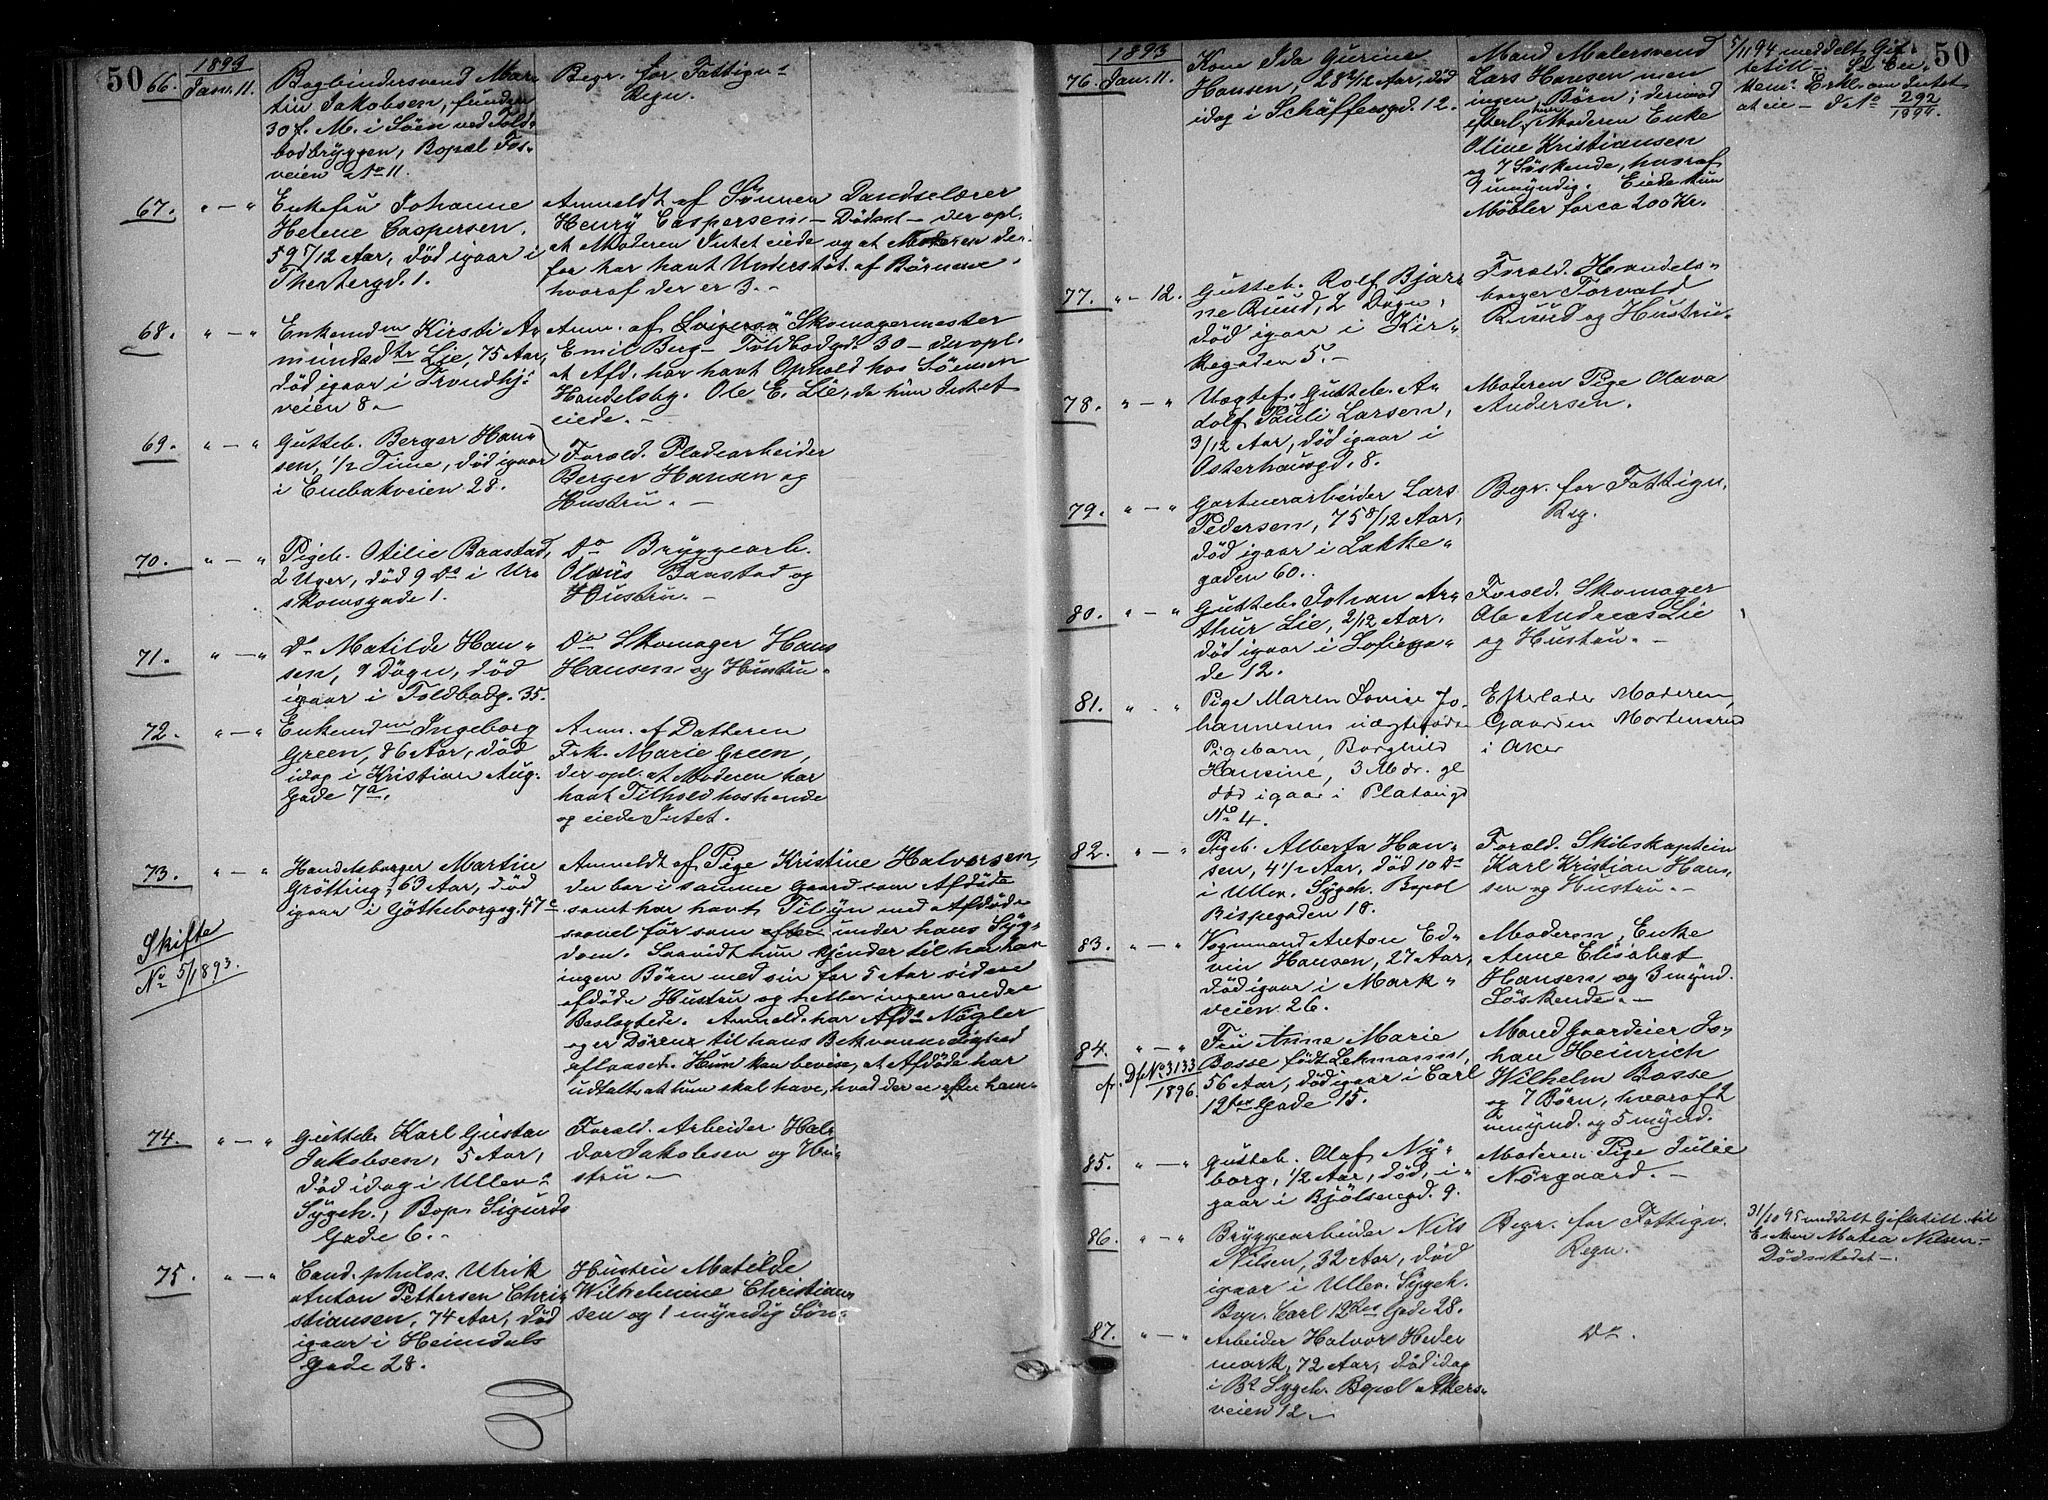 50
1893
66.
Jan. 11.
Bogbindersvend Mar-
tin Jakobsen, funden
30 f. M. i Söen ved Told-
bodbryggen, Bopæl Fos-
veien No 11.
Begr. for Fattigv.s
Regn.
67.
" — "
Enkefru Johanne
Helene Caspersen,
59 7/12 Aar, död igaar i
Therbergd. 1.
Anmeldt af Sönnen Dandselærer
Henry Caspersen — Dödsst — der opl.
at Moderen Intet eiede og at Moderen der-
for har havt Understöt. af Börnene
hvoraf der er 3. —
68.
" — "
Enkemdm Kirsti A-
mundsdtr Lie, 75 Aar,
död igaar i Trondhj.
veien 8. —
Anm. af Svigersø Skomagermester
Emil Berg — Toldbodgd. 30 — der opl.
at Afd. har havt Ophold hos Sönnen
Handelsbg. Ole E. Lie, da hun Intet
eiede. —
69.
" — "
Gutteb. Berger Han-
sen, 1/2 Time, död igaar
i Enebakveien 28.
Foræld. Pladearbeider
Berger Hansen og
Hustru. —
70.
" — "
Pigeb. Otilie Baastad,
2 Uger, död 9 ds i Ur-
skomsgade 1.
Do Bryggearb.
Olaus Baastad og
Hustru. —
71.
" — "
do Matilde Han-
sen, 9 Dögn, död
igaar i Toldbodg. 35.
Do Skomager Hans
Hansen og Hustru.
72.
" — "
Enkemdm Ingeborg
Green, 86 Aar, död
idag i Kristian Aug.
Gade 7a.
Anm. af Datteren
Frk. Marie Green,
der opl. at Moderen har
havt Tilhold hos hende
og eiede Intet.
73.
" — "
Skifte
No 5/1893.
Handelsborger Martin
Grötting, 63 Aar, död
igaar i Götheborgsg. 47c
Anmeldt af Pige Kristine Halvorsen,
der bor i samme Gaard som Afdöde
samt har havt Tilsyn med Afdöde
saavel för som efter under hans Syg-
dom. Saavidt hun kjender til har han
ingen Börn med sin for 5 Aar siden
afdöde Hustru og heller ingen andre
Beslægtede. Anmeld. har Afd.s Nögler
og er Dörene til hans Bekvemmelighed
aflaaset. Hun kan bevise, at Afdöde har
udtalt, at hun skal have, hvad der er efter ham.
74.
" — "
Gutteb. Karl Gustav
Jakobsen, 5 Aar,
död idag i Ullev.
Sygeh., Bop. Sigurds
Gade 6. —
Foræld. Arbeider Hal-
dor Jakobsen og Hu-
stru —
75.
" — "
Cand. philos. Ulrik
Anton Pettersen Chri-
stiansen, 74 Aar, död
igaar i Heimdals
Gade 28.
Hustru Matilde
Wilhelmine Christian-
sen og 1 myndig Sön.
1893
50
76.
Jan. 11.
Kone Ida Gurine
Hansen, 28 2/12 Aar, död
idag i Schäffersgd. 12.
Mand Malersvend
Lars Hansen men
ingen Börn; dermod
efterl. hun Moderen Enke
Olive Kristiansen
og 7 Söskende, hvoraf
9 umyndig. Eiede kun
Möbler for ca 200 Kr.
7/11 94 meddelt Gif-
tetill.
Erkl. om Intet
at eie — d. No 292/1894.
77.
" — 12.
Gutteb. Rolf Bjar-
ne Ruud, 2 Dögn,
död igaar i Kir-
kegaden 5. —
Foræld. Handels-
borger Torvald
Ruud og Hustru.
78.
" — "
Uægtef. Gutteb. A-
dolf Pauli Larsen,
3/12 Aar, död igaar i
Osterhausgd. 8.
Moderen Pige Olava
Andersen.
79.
" — "
Gartnerarbeider Lars
Pedersen, 75 8/12 Aar,
död igaar i Lakke-
gaden 60.
Begr. for Fattigv.
Reg.
80.
" — "
Gutteb. Johan Ar-
thur Lie, 2/12 Aar,
död igaar i Sofiega-
de 12.
Foræld. Skomager
Ole Andreas Lie
og Hustru. —
81.
" — "
Pige Maren Lovise Jo-
hannesens uægtefødte
Pigebarn, Borghild
Hansine, 3 Mdr. gl
död igaar i Platousgd
No 4.
Efterlader Moderen,
Gaarden Mortensrud
i Aker
82.
" — "
Pigeb. Alberta Han-
sen, 4 1/2 Aar, död 10 ds
i Ullev. Sygeh. Bopæl
Bispegaden 18.
Foræld. Skibskaptein
Karl Kristian Han-
sen og Hustru. —
83.
" — "
Vognmand Anton Ed-
vin Hansen, 27 Aar,
död igaar i Mark-
veien 26.
Moderen, Enke
Anne Elisabet
Hansen og 3 mynd.
Söskende. —
84.
" — "
cfr. Df No 3133/1896.
Fru Anne Marie
Bosse født Lekmann,
56 Aar, död igaar i Carl
12tes Gade 15.
Mand Gaardeier Jo-
han Heinrich
Wilhelm Bosse
og 7 Börn, hvoraf 2
umynd. og 5 mynd.
85.
" — "
Gutteb. Olaf Ny-
borg, 1/2 Aar, död i-
gaar i Bjölsengd. 9.
Moderen Pige Julie
Nörgaard. —
86.
" — "
Bryggearbeider Nils
Nilsen, 32 Aar, död
igaar i Ullev. Sygeh.
Bop. Carl 12tes Gade 28.
Begr. for Fattigv.
Regn.
31/10 95 meddelt Giftetill. til
Enken Matea Nilsen —
Dödsstedet —.
87.
" — "
Arbeider Halvor Hede-
mark, 72 Aar, död idag
i By Sygeh. Bopæl Akers-
veien 12. —
Do.